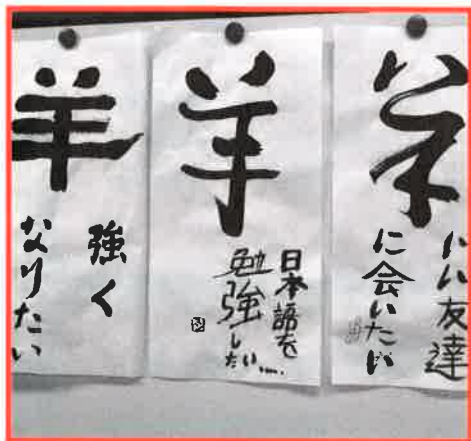 羊
強く
なりたい
羊
日本語を
勉強したい....
羊
いい友達
に会いたい